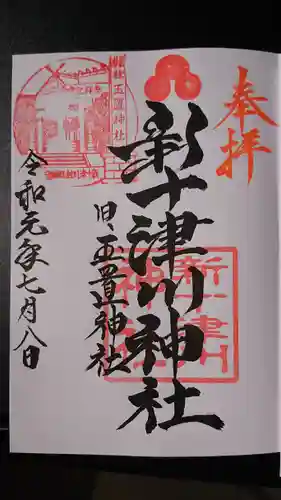 奉拝
新十津川神社
旧、玉置神社
令和元年七月八日
新十津川神社
玉置神社